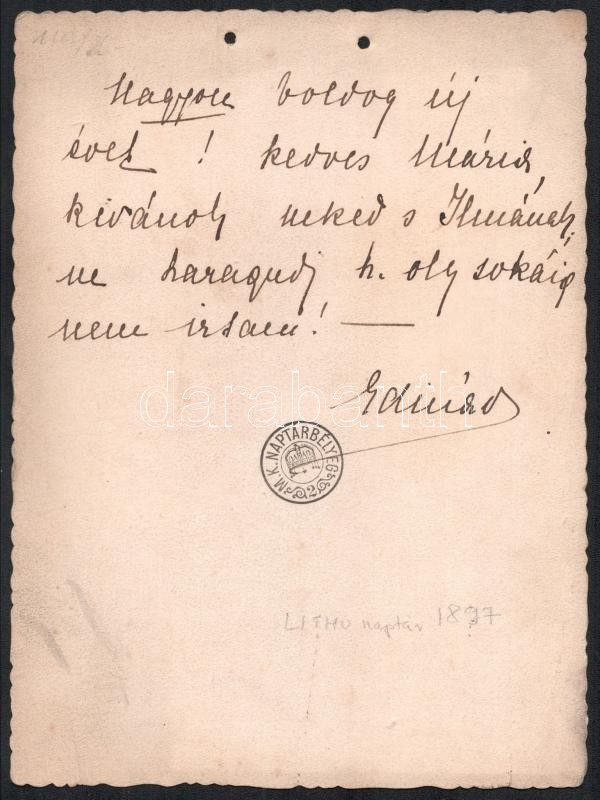 Nagyon boldog új
évet ! kedves Mária,
kivánok neked s Ilmának,
ne haragudj h. oly sokáig
nem irtam! —
Edmárd
darabanth
M. K. NAPTÁRBÉLYEG 2
LITHO naptár 1897